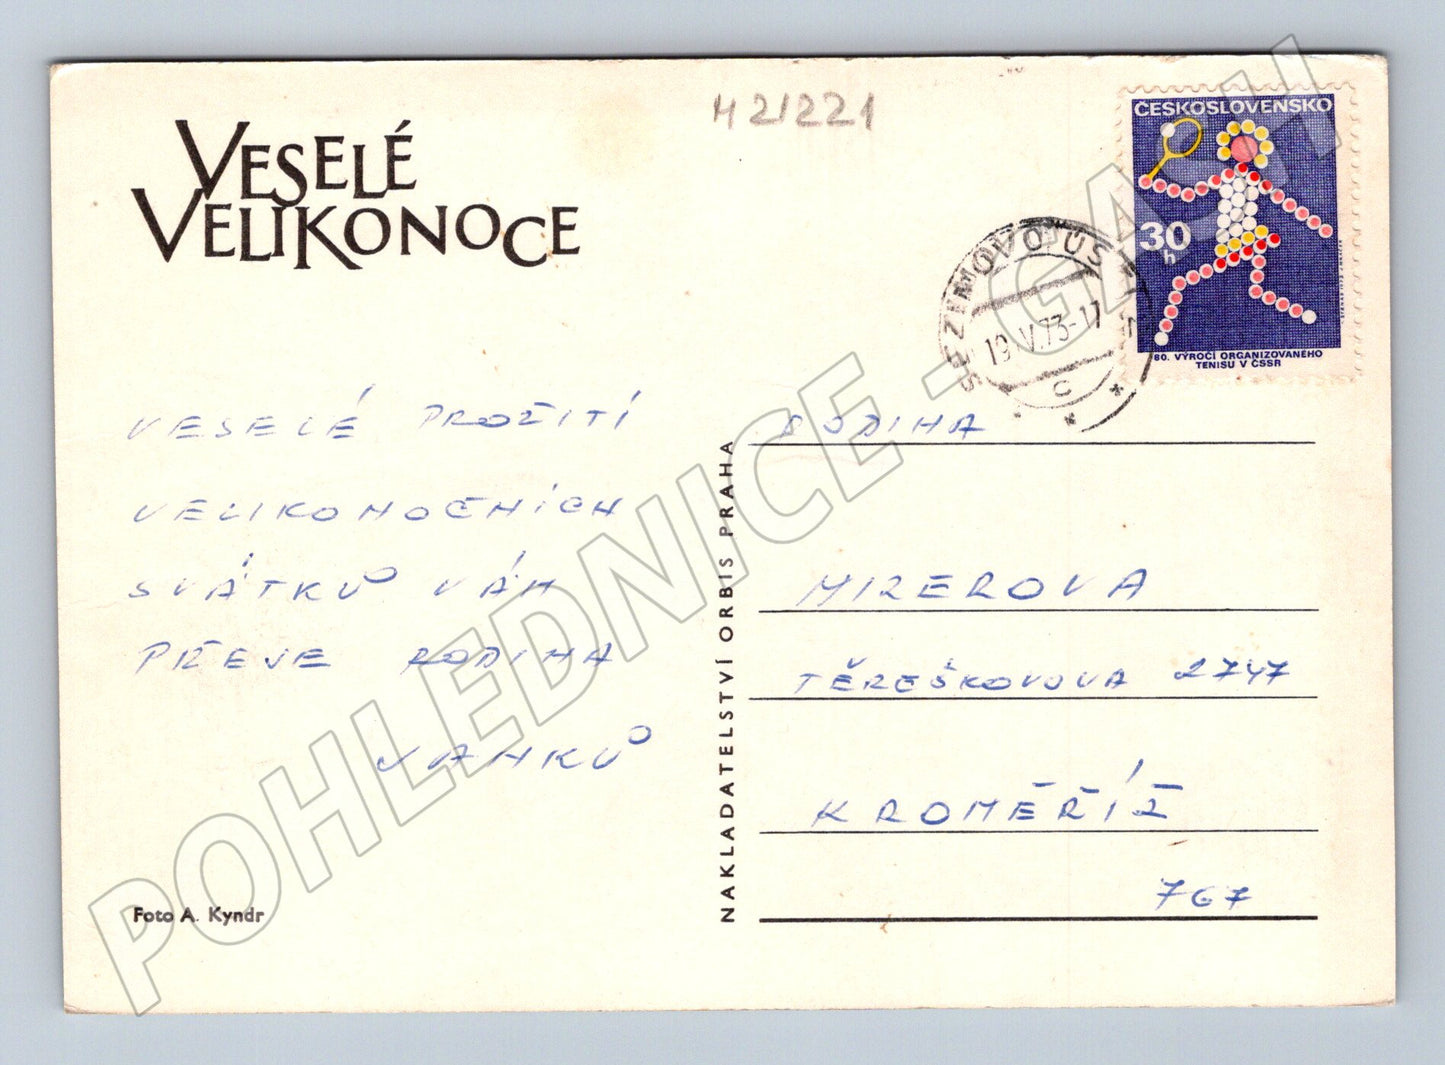 VESELÉ
VELIKONOCE
H21221
ČESKOSLOVENSKO
30
h
80. VÝROČÍ ORGANIZOVANÉHO
TENISU V ČSSR
SEZIMOVO ÚSTÍ
19.IV.73-17
C
VESELÉ PROŽITÍ
VELIKONOČNÍCH
SVÁTKŮ VÁM
PŘEJE RODINA
VAŇKŮ
RODINA
MIREROVA
TĚREŠKOVOVA 2747
KROMĚŘÍŽ
767
NAKLADATELSTVÍ ORBIS PRAHA
Foto A. Kyndr
POHLEDNICE - GASH